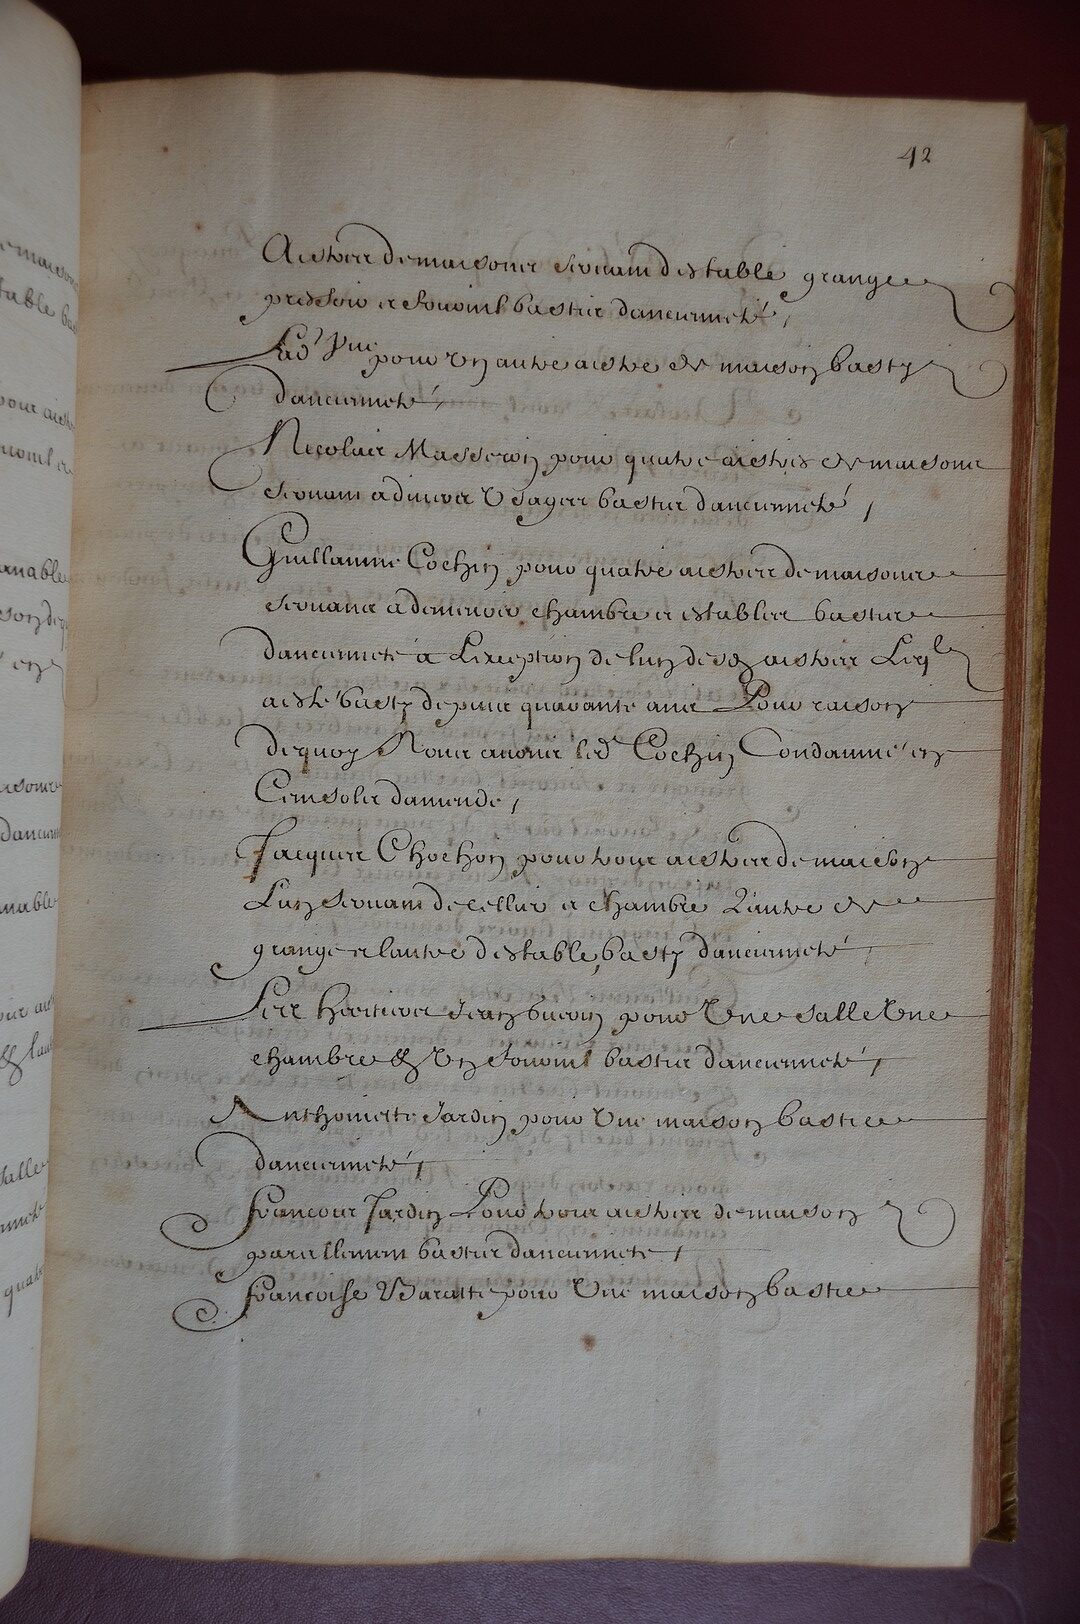 42
Aistres de maisons servant d'estable grange
pressoir et fournil bastis d'ancienneté,
Lad. Vve pour un autre aistre de maison basty
d'ancienneté,
Nicolas Masseron pour quatre aistres de maisons
servant a divers usages bastis d'ancienneté,
Guillaume Cochin pour quatre aistres de maisons
servans a demeure chambre et establer bastis
d'ancienneté a L'exception de l'un desd. aistres Leql
aistre basty depuis quarante ans Pour raison
dequoy Nous avons led. Cochin Condamné en
Cent solz d'amende,
Jacques Chochon pour trois aistres de maison
L'un servant de cellier et chambre L'autre de
grange et lautre d'estable, basty d'ancienneté,
Les heritiers Jean pour Une salle Une
chambre & Un fournil bastis d'ancienneté,
Anthoinette Jardin pour Une maison bastie
d'ancienneté,
Francois Jardin Pour trois aistres de maison
pareillement bastis d'ancienneté,
Francoise pour Une maison bastie